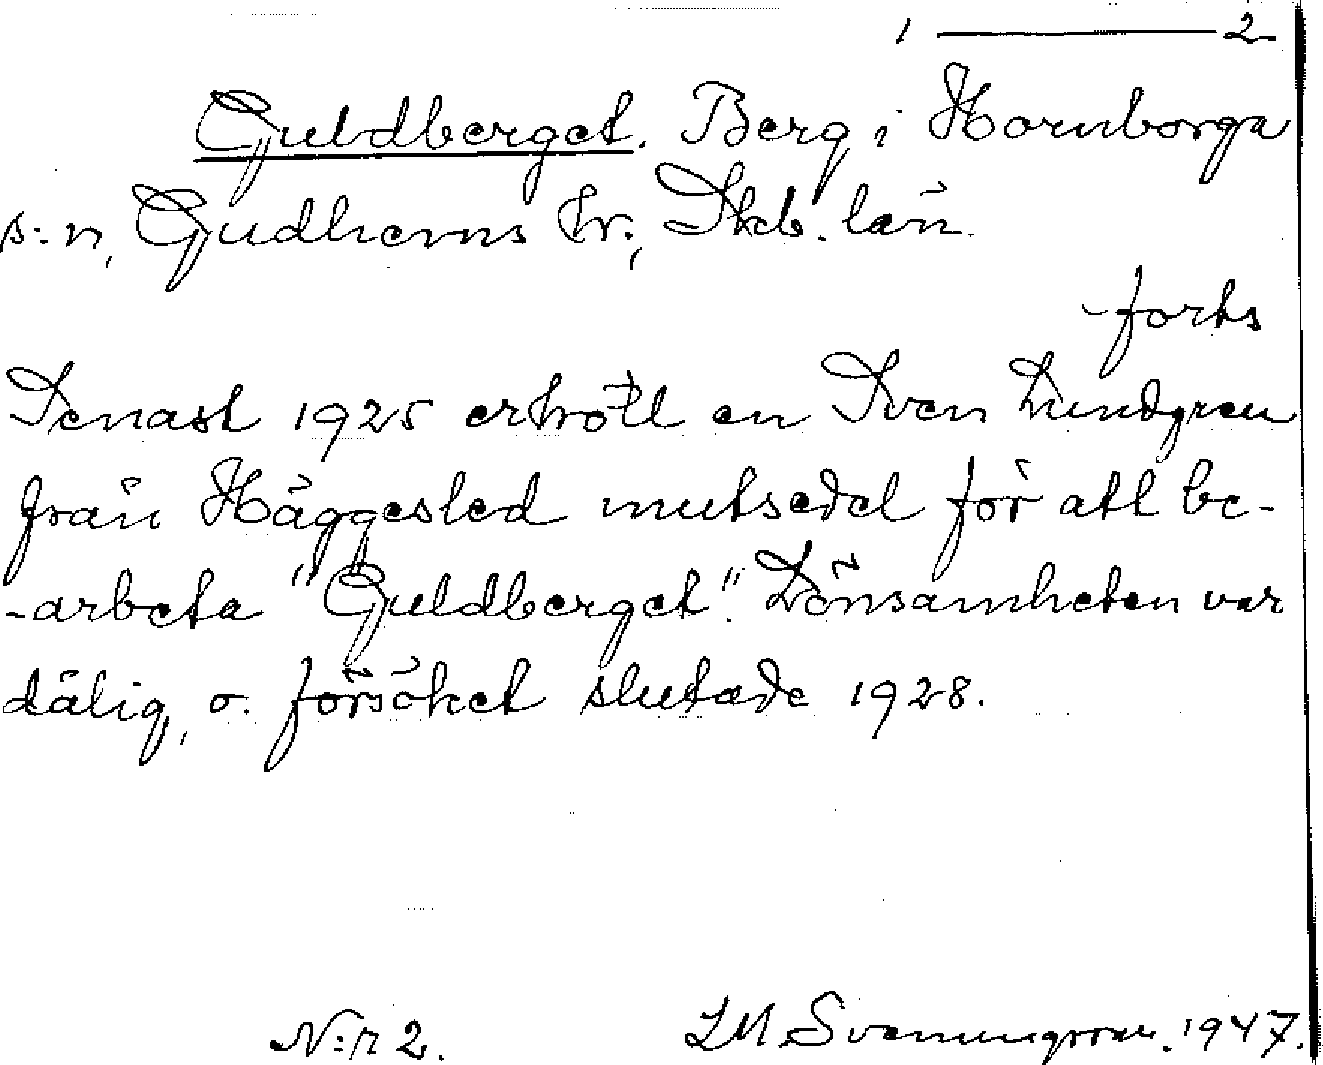 1 ——— 2
Guldberget. Berg i Hornborga
s:n, Gudhems hr., Skb. län.
forts
Senast 1925 erhöll en Sven Lundgren
från Häggesled mutsedel för att be-
-arbeta "Guldberget". Lönsamheten var
dålig, o. försöket slutade 1928.
N:r 2. LM Svenungsson. 1947.